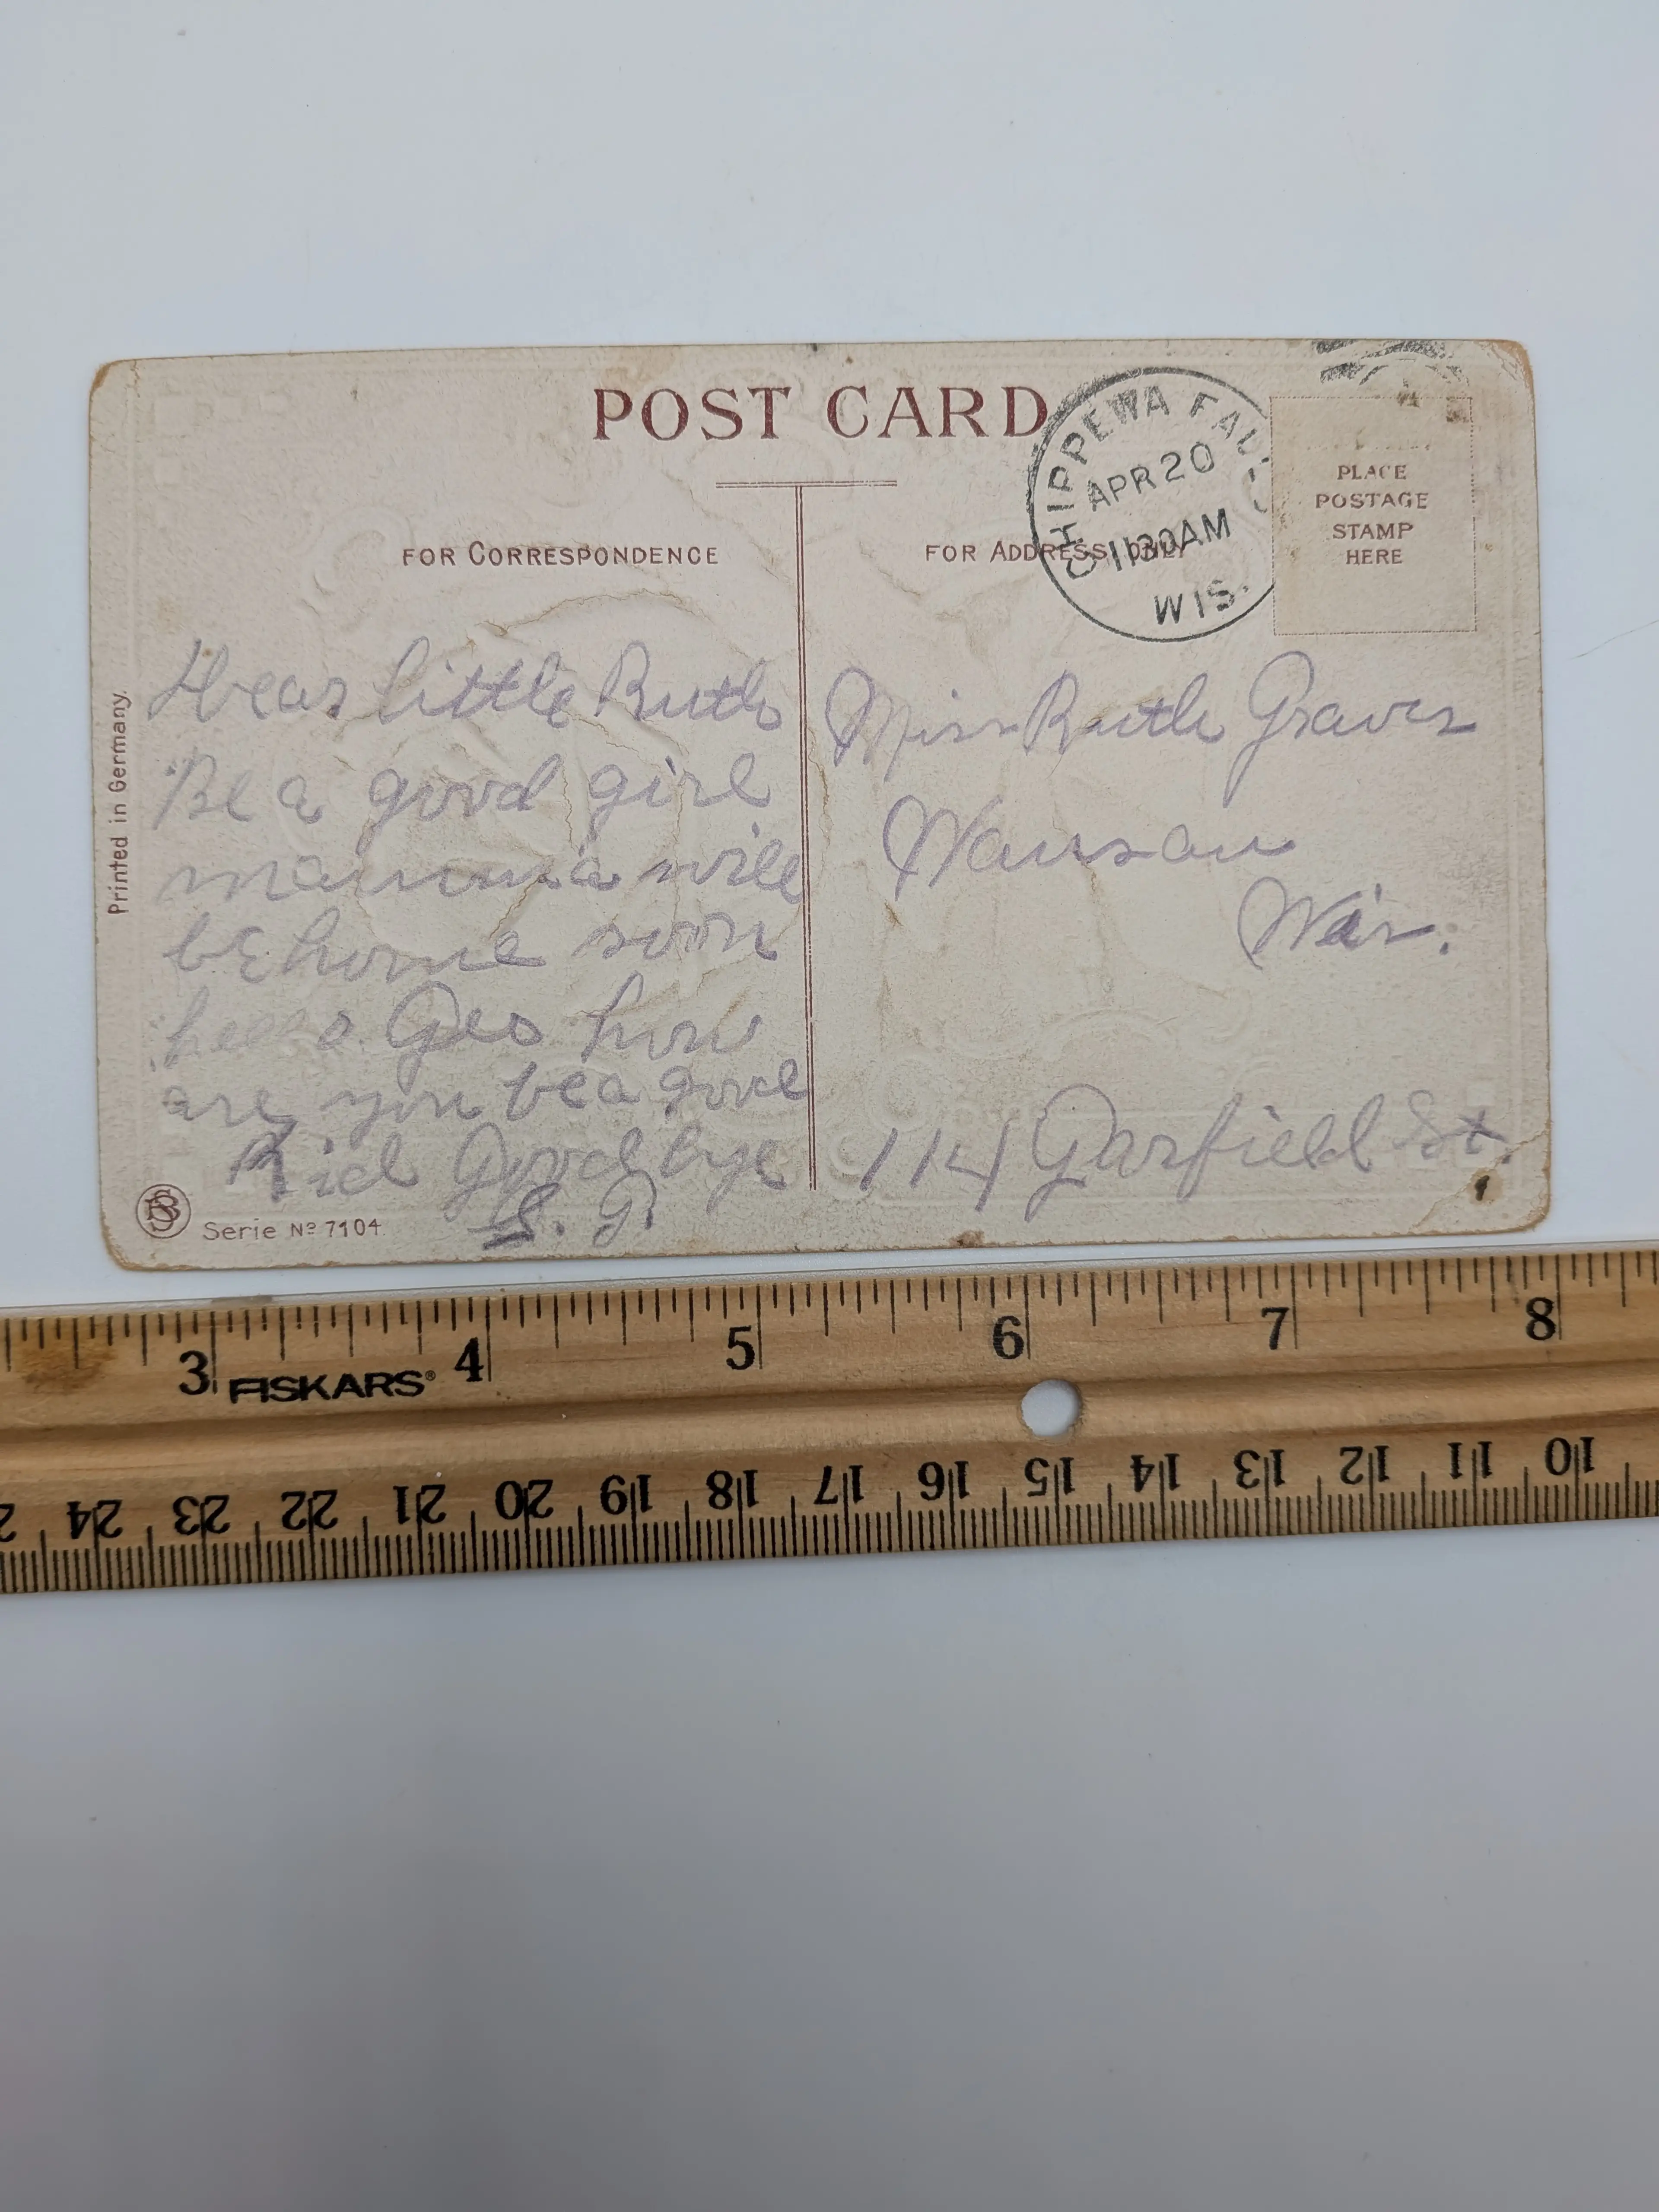 POST CARD
CHIPPEWA FALLS
APR 20
1130AM
WIS.
PLACE
POSTAGE
STAMP
HERE
FOR CORRESPONDENCE
FOR ADDRESS ONLY
Printed in Germany.
Dear little Ruth
Be a good girl
mamma will
be home soon
hello Geo how
are you be a good
Kid Good bye
S. G.
Miss Ruth Graves
Wausau
Wis.
114 Garfield St.
BS
Serie No 7104
3 4 5 6 7 8
FISKARS®
24 23 22 21 20 19 18 17 16 15 14 13 12 11 10